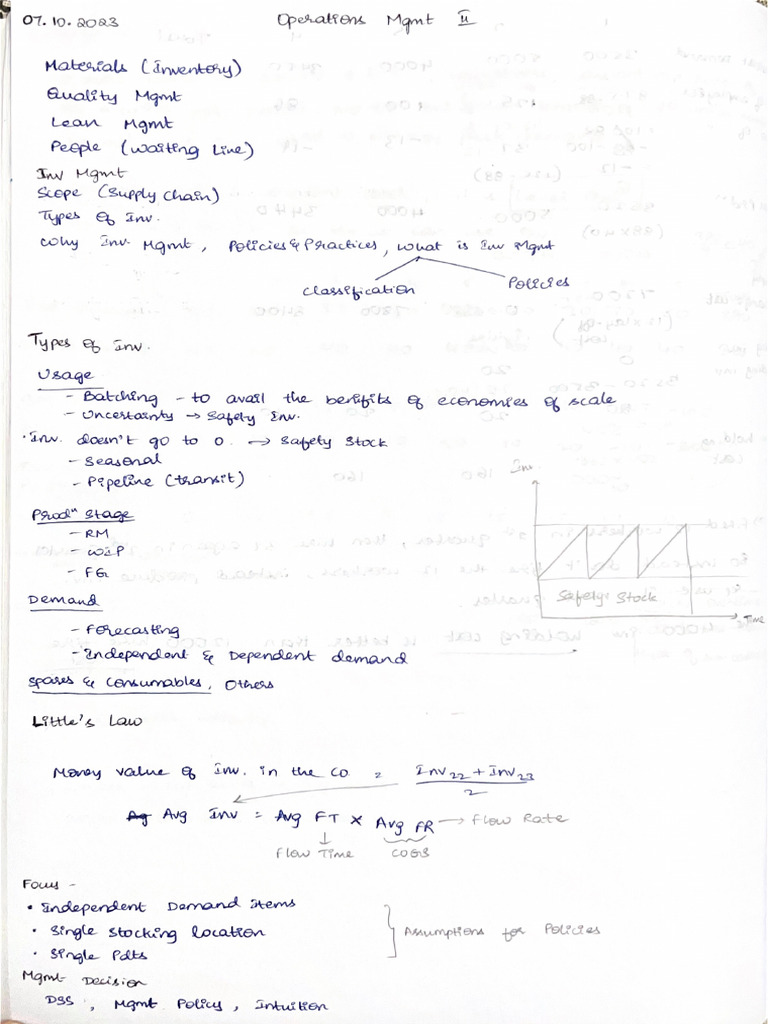 07.10.2023
Operations Mgmt II
Materials (Inventory)
Quality Mgmt
Lean Mgmt
People (Waiting Line)
Inv Mgmt
Scope (Supply Chain)
Types of Inv.
Why Inv Mgmt, Policies & Practices, What is Inv Mgmt
Classification
Policies
Types of Inv.
Usage
- Batching - to avail the benifits of economies of scale
- Uncertainty → Safety Inv.
· Inv. doesn't go to 0. → Safety Stock
- Seasonal
- Pipeline (transit)
Inv.
Safety Stock
Time
Prodⁿ Stage
- RM
- WIP
- FG
Demand
- Forecasting
- Independent & Dependent demand
Spares & Consumables, Others
Little's Law
Money value of Inv. in the Co. = Inv22 + Inv23
2
Avg Inv = Avg FT × Avg FR → Flow Rate
Flow Time
COGS
Focus -
• Independent Demand items
• Single stocking location
• Single Pdts
Assumptions for Policies
Mgmt Decision
DSS, Mgmt Policy, Intuition